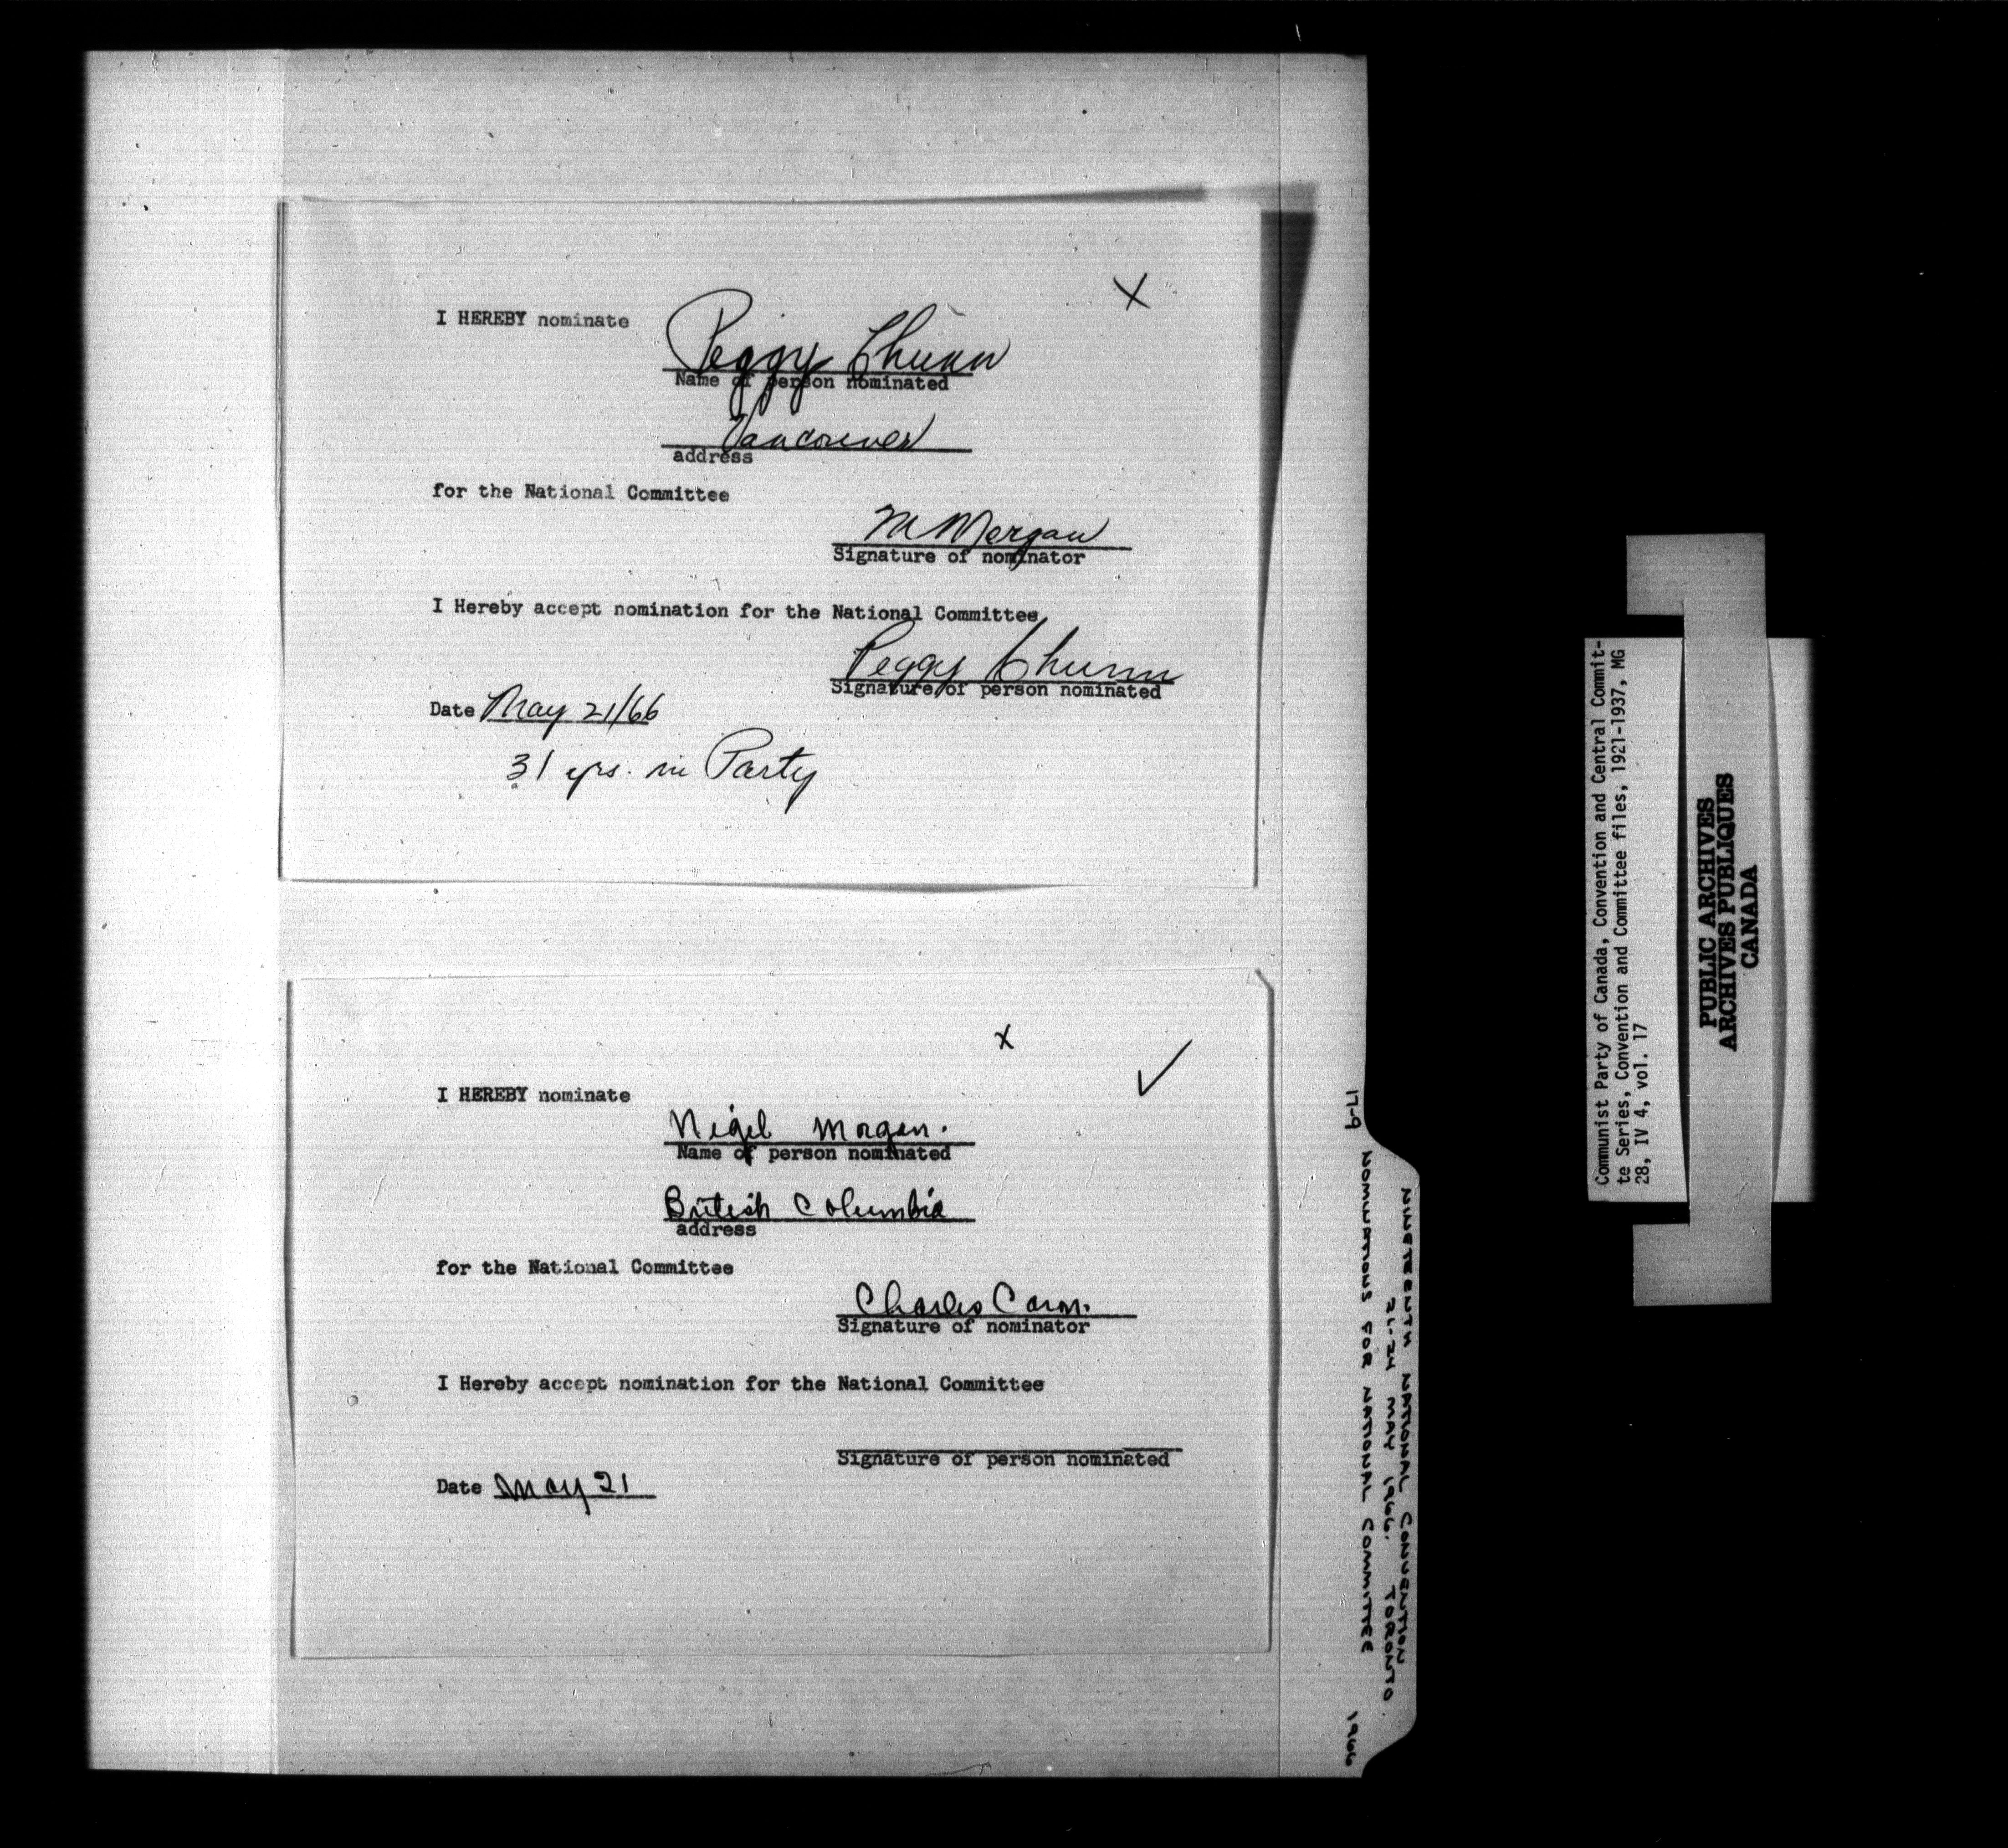 X
I HEREBY nominate Peggy Chunn
Name of person nominated
Vancouver
address
for the National Committee
M Morgan
Signature of nominator
I Hereby accept nomination for the National Committee
Peggy Chunn
Signature of person nominated
Date May 21/66
31 yrs. in Party
x
I HEREBY nominate
Nigel Morgan.
Name of person nominated
British Columbia
address
for the National Committee
Charles Caron.
Signature of nominator
I Hereby accept nomination for the National Committee
Signature of person nominated
Date May 21
17-9
NOMINATIONS FOR NATIONAL COMMITTEE
1966
NINETEENTH NATIONAL CONVENTION
21-24 MAY 1966. TORONTO.
Communist Party of Canada, Convention and Central Commit-
te Series, Convention and Committee files, 1921-1937, MG
28, IV 4, vol. 17
PUBLIC ARCHIVES
ARCHIVES PUBLIQUES
CANADA